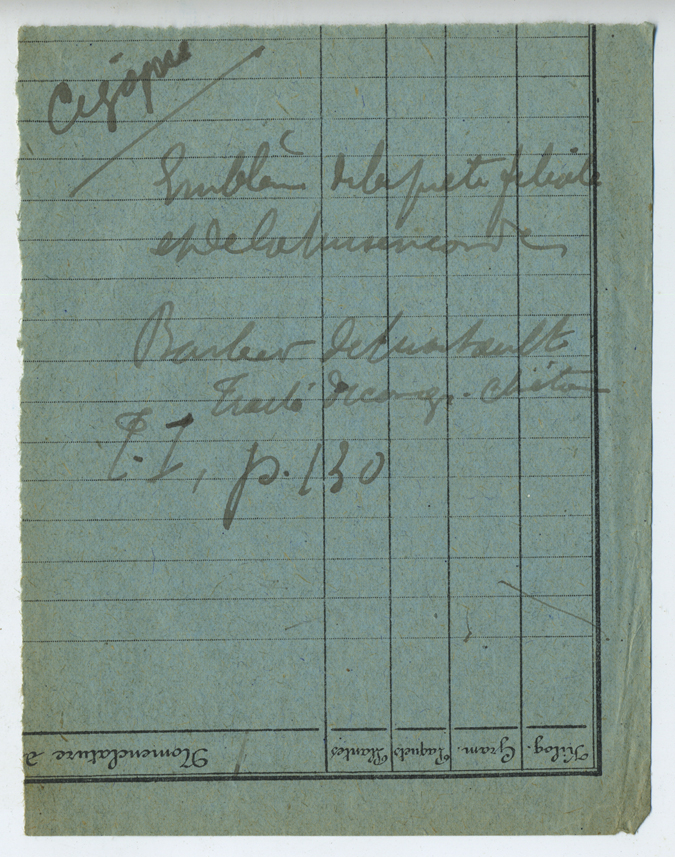 Cigogne
Emblème de la piété filiale
et de la miséricorde
Barbier de Montault
Traité d'iconogr. chrétienne
T. I, p. 130
Nomenclature d
Plantes
Paquets
Gram.
Kilog.